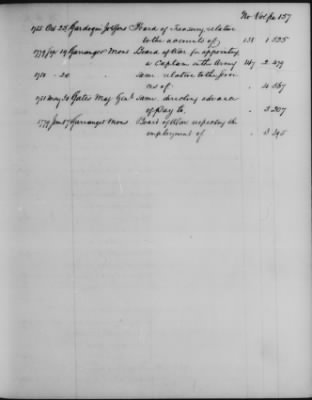 No Vol pa 157
1785 Oct 25 Gardoqui Jo & Sons Board of Treasury, relative
to the accounts of, 138 . 1 . 525
1779 19 Garranger Mons Board of War for appointing
a Captain in the Army 147 . 2 . 479
20 same relative to the
of . 4 . 567
1781 May 30 Gates Maj Genl same directing advance
of pay to . 5 . 207
1779 7 Garranger Mons Board of War respecting the
employment of . 3 .